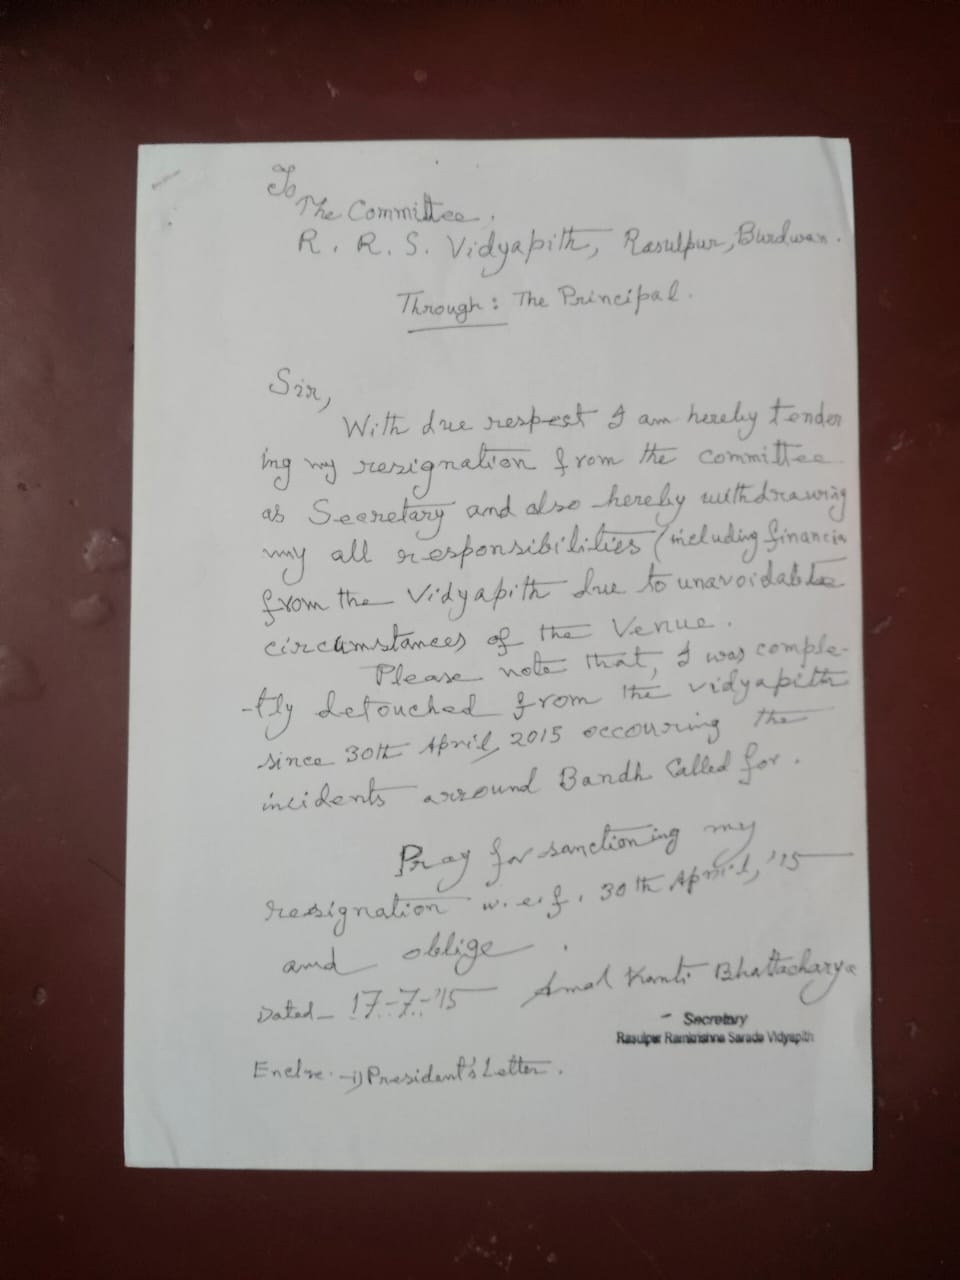 To
The Committee,
R. R. S. Vidyapith, Rasulpur, Burdwan.
Through: The Principal.
Sir,
With due respect I am hereby tender
ing my resignation from the committee
as Secretary and also hereby withdrawing
my all responsibilities (including financia
from the Vidyapith due to unavoidable
circumstances of the Venue.
Please note that, I was comple-
-tly detouched from the vidyapith
since 30th April, 2015 occouring the
incidents arround Bandh Called for.
Pray for sanctioning my
resignation w.e.f. 30th April, '15
and oblige.
Dated- 17-7-'15 Amal Kanti Bhattacharya
Secretary
Rasulpur Ramkrishna Sarada Vidyapith
Enclse:-i) President's Letter.